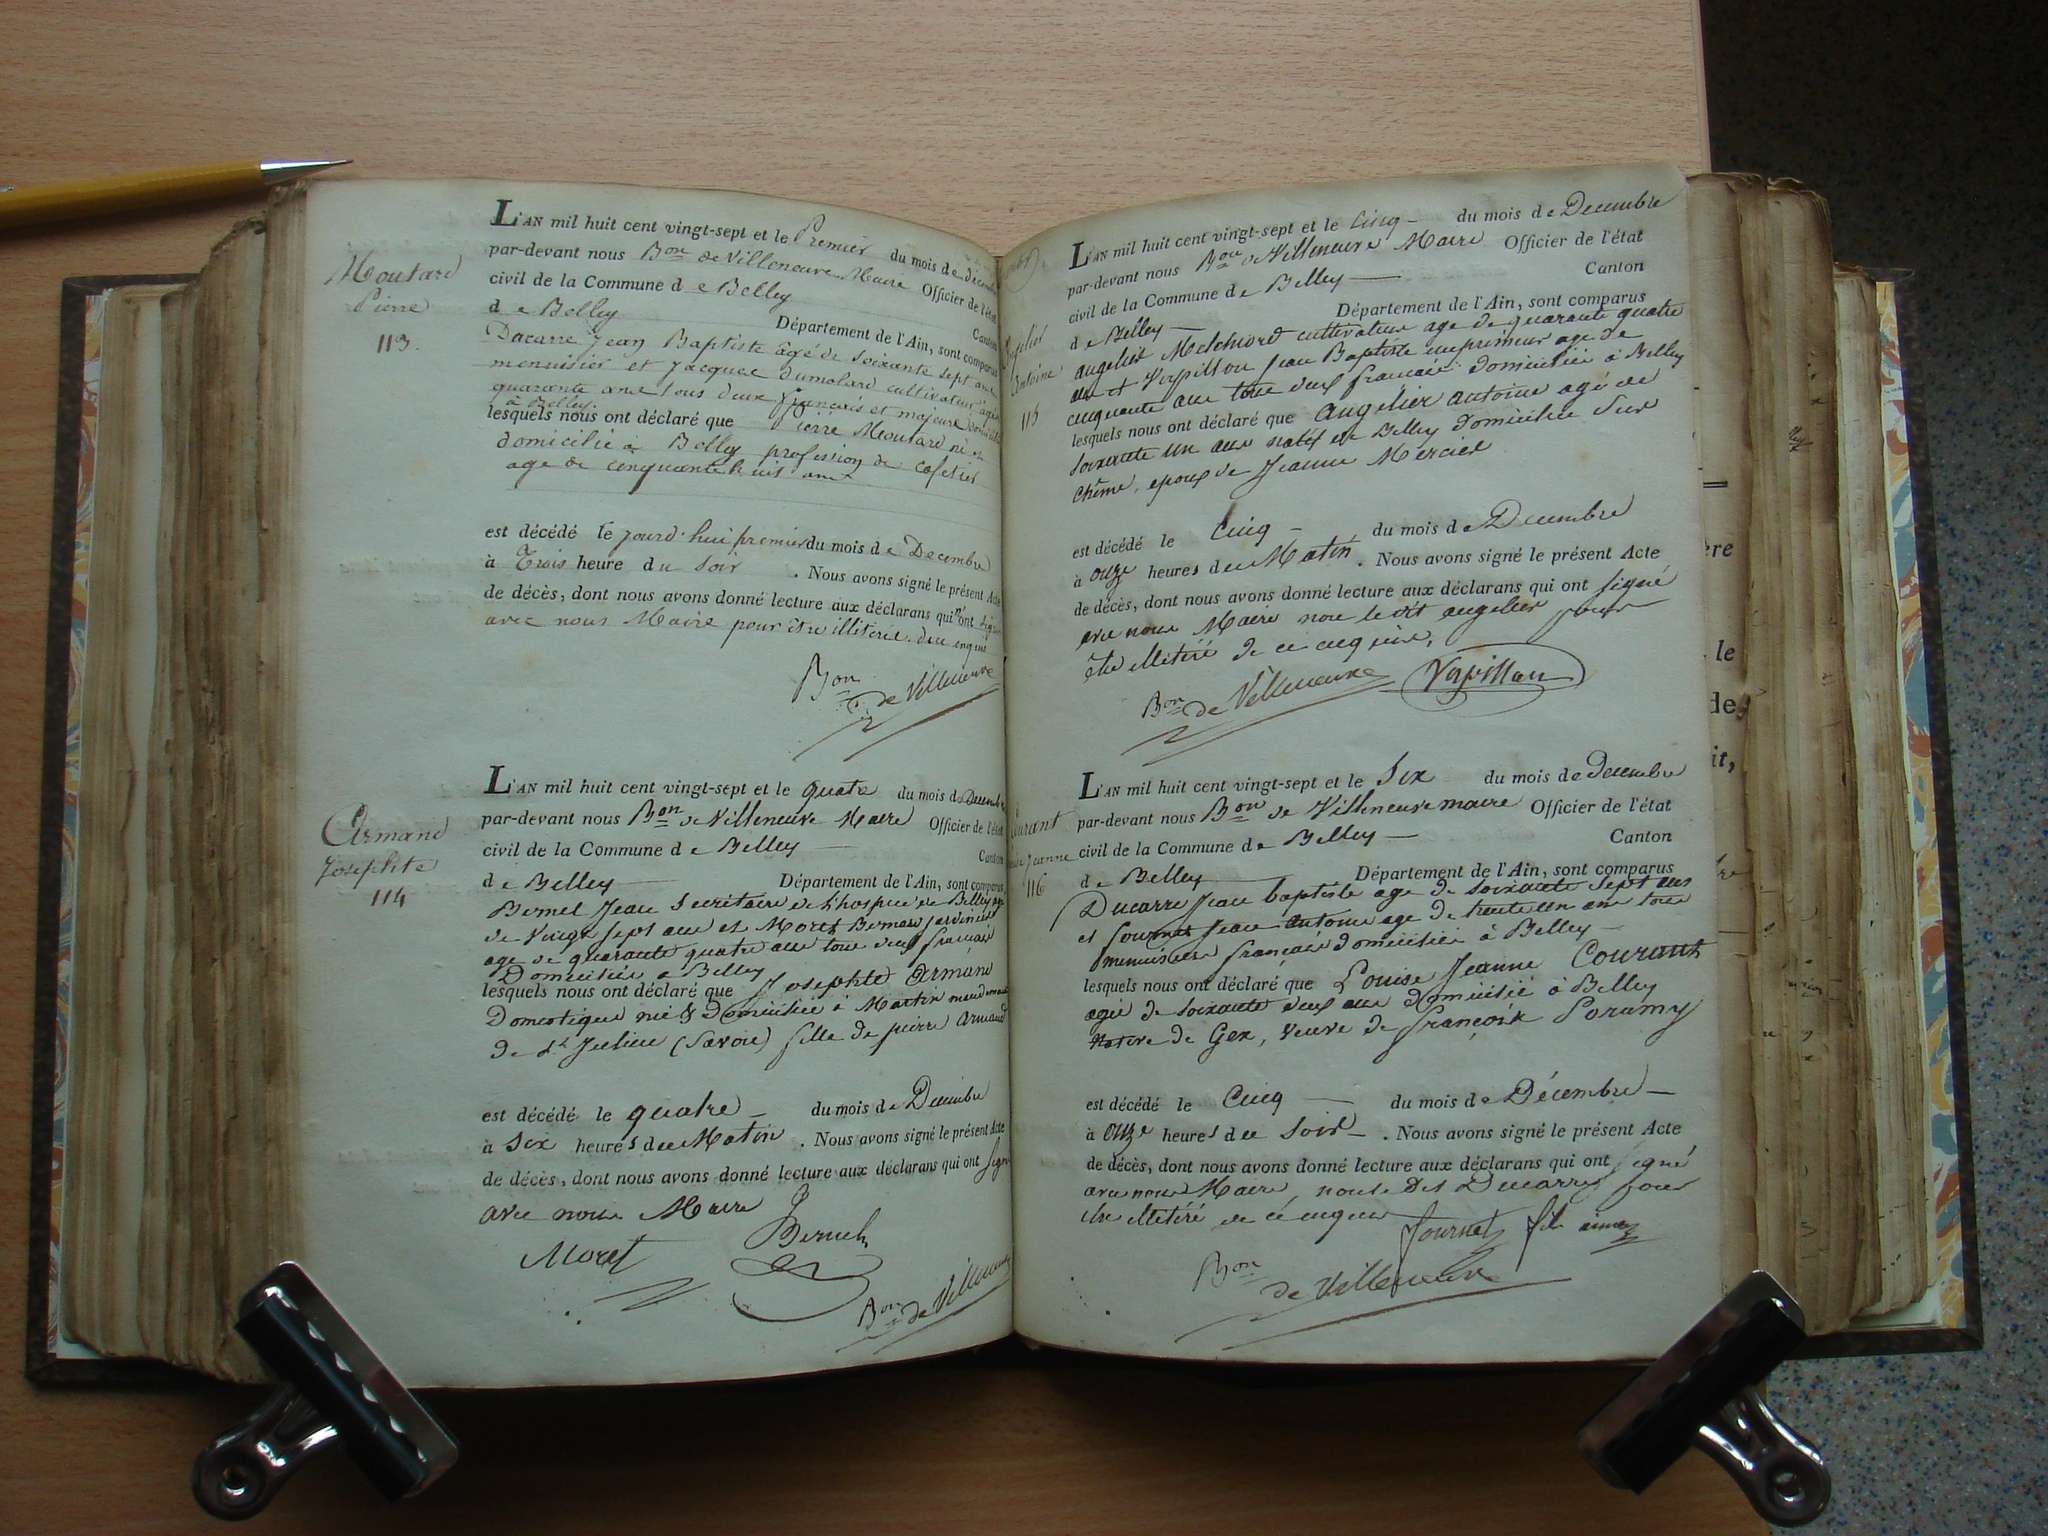 Moutard
Pierre
113.
L'AN mil huit cent vingt-sept et le Premier du mois de décembre
par-devant nous Bon de Villeneuve Maire Officier de l'état
civil de la Commune de Belley Canton
de Belley Département de l'Ain, sont comparus
Ducarre Jean Baptiste âgé de soixante sept ans
menuisier et Jacques Dumolard cultivateur agé
quarante ans tous deux français et majeurs domiciliés
à Belley.
lesquels nous ont déclaré que Pierre Moutard né et
domicilié à Belley profession de cafetier
age de cinquante huit ans
est décédé le jourd'hui premier du mois de Decembre
à Trois heure du soir . Nous avons signé le présent Acte
de décès, dont nous avons donné lecture aux déclarans qui n'ont signé
avec nous Maire pour être illiteré. de ce enquis
Bon de Villeneuve
Armand
Josephte
114
L'AN mil huit cent vingt-sept et le quatre du mois de Decembre
par-devant nous Bon de Villeneuve Maire Officier de l'état
civil de la Commune de Belley Canton
de Belley Département de l'Ain, sont comparus
Bernel Jean Secrétaire de l'hospice de Belley age
de vingt sept ans et Moret Bernard jardinier
age de quarante quatre ans tous deux français
Domiciliés a Belley
lesquels nous ont déclaré que Josephte Armand
Domestique née & domiciliée à Martin
de St Julien (Savoie) fille de pierre Armand
est décédé le quatre du mois de Décembre
à six heures du Matin . Nous avons signé le présent Acte
de décès, dont nous avons donné lecture aux déclarans qui ont signé
avec nous Maire
Moret Bernel
Bon de Villeneuve
Antoine
115
L'AN mil huit cent vingt-sept et le cinq du mois de Decembre
par-devant nous Bon de Villeneuve Maire Officier de l'état
civil de la Commune de Belley Canton
de Belley Département de l'Ain, sont comparus
angelier Melchiord cultivateur age de quarante quatre
ans et Verpillon Jean Baptiste imprimeur age de
cinquante ans tous deux français domiciliés à Belley
lesquels nous ont déclaré que Angelier Antoine agé de
soixante un ans natif de Belley domicilié sur
Chême, epoux de Jeanne Mercier
est décédé le Cinq du mois de Decembre
à onze heures du Matin . Nous avons signé le présent Acte
de décès, dont nous avons donné lecture aux déclarans qui ont signé
avec nous Maire non le dit angelier pour
être illiteré de ce enquis.
Bon de Villeneuve Verpillon
Courant
Jeanne
116
L'AN mil huit cent vingt-sept et le Six du mois de Decembre
par-devant nous Bon de Villeneuve maire Officier de l'état
civil de la Commune de Belley Canton
de Belley Département de l'Ain, sont comparus
Ducarre Jean baptiste age de soixante sept ans
et fournet Jean Antoine age de trente un ans tous
menuisiers français domiciliés à Belley
lesquels nous ont déclaré que Louise Jeanne Courant
agée de soixante deux ans domiciliée à Belley
Native de Gex, veuve de françois Poramy
est décédé le Cinq du mois de Décembre
à onze heures du soir . Nous avons signé le présent Acte
de décès, dont nous avons donné lecture aux déclarans qui ont signé
avec nous Maire, non le dit Ducarre pour
être illitéré de ce enquis
fournet fils
Bon de Villeneuve
ère
le
de
it,